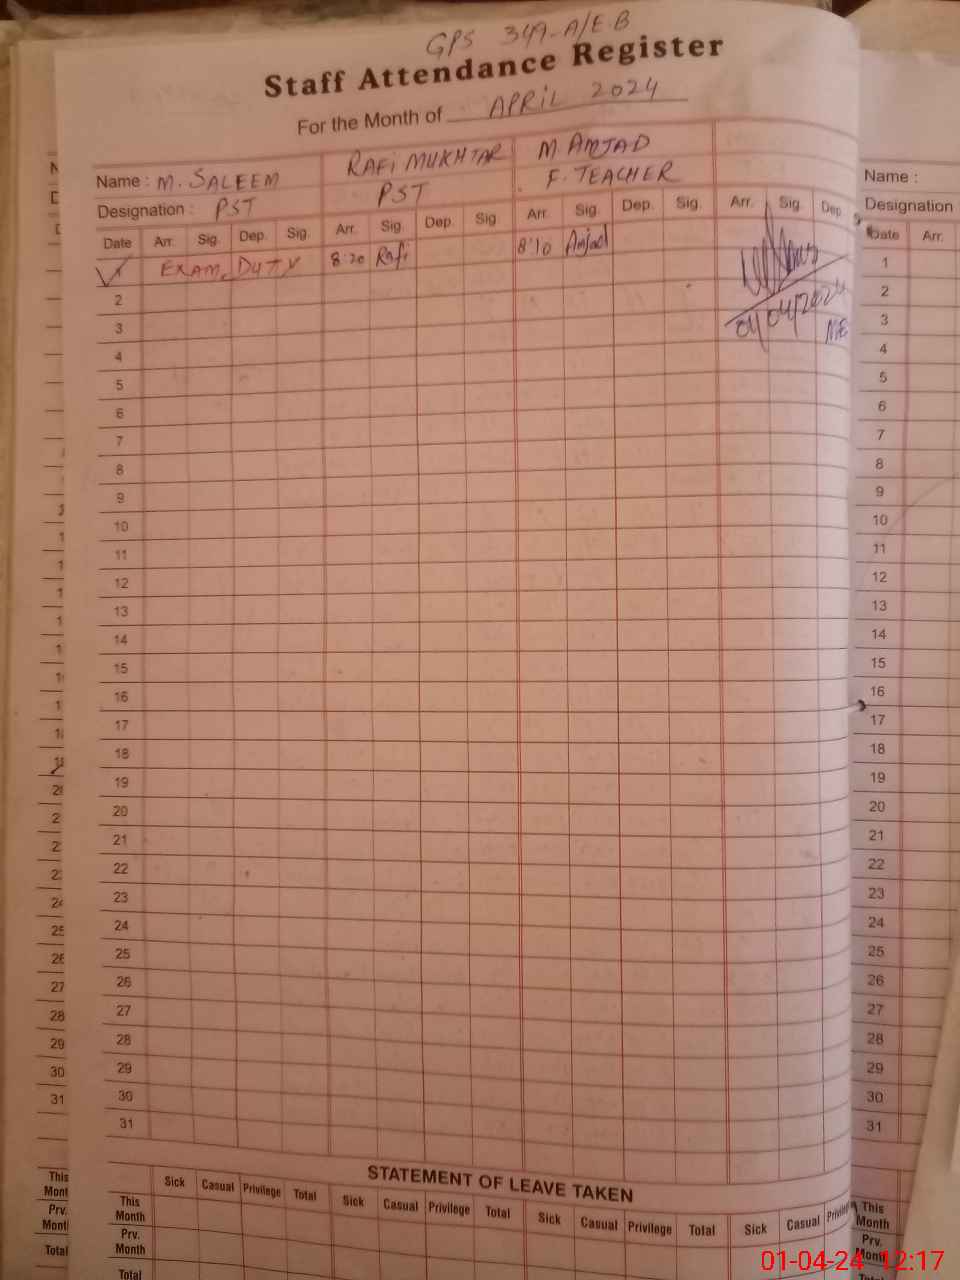 GPS 349-A/E.B
Staff Attendance Register
For the Month of APRIL 2024
Name : M. SALEEM RAFI MUKHTAR M AMJAD
Designation : PST PST F. TEACHER
Date Arr. Sig. Dep. Sig. Arr. Sig. Dep. Sig. Arr. Sig. Dep. Sig. Arr. Sig. Dep.
EXAM, DUTY 8:20 Rafi 8:10 Amjad
2
3
01/04/2024
4
5
6
7
8
9
10
11
12
13
14
15
16
17
18
19
20
21
22
23
24
25
26
27
28
29
30
31
STATEMENT OF LEAVE TAKEN
Sick Casual Privilege Total Sick Casual Privilege Total Sick Casual Privilege Total Sick Casual
This Month
Prv. Month
Total
Name :
Designation
Date Arr.
1
2
3
4
5
6
7
8
9
10
11
12
13
14
15
16
17
18
19
20
21
22
23
24
25
26
27
28
29
30
31
This Month
Prv. Month
Total
20
25
27
28
29
30
31
This
Prv.
Total
01-04-24 12:17